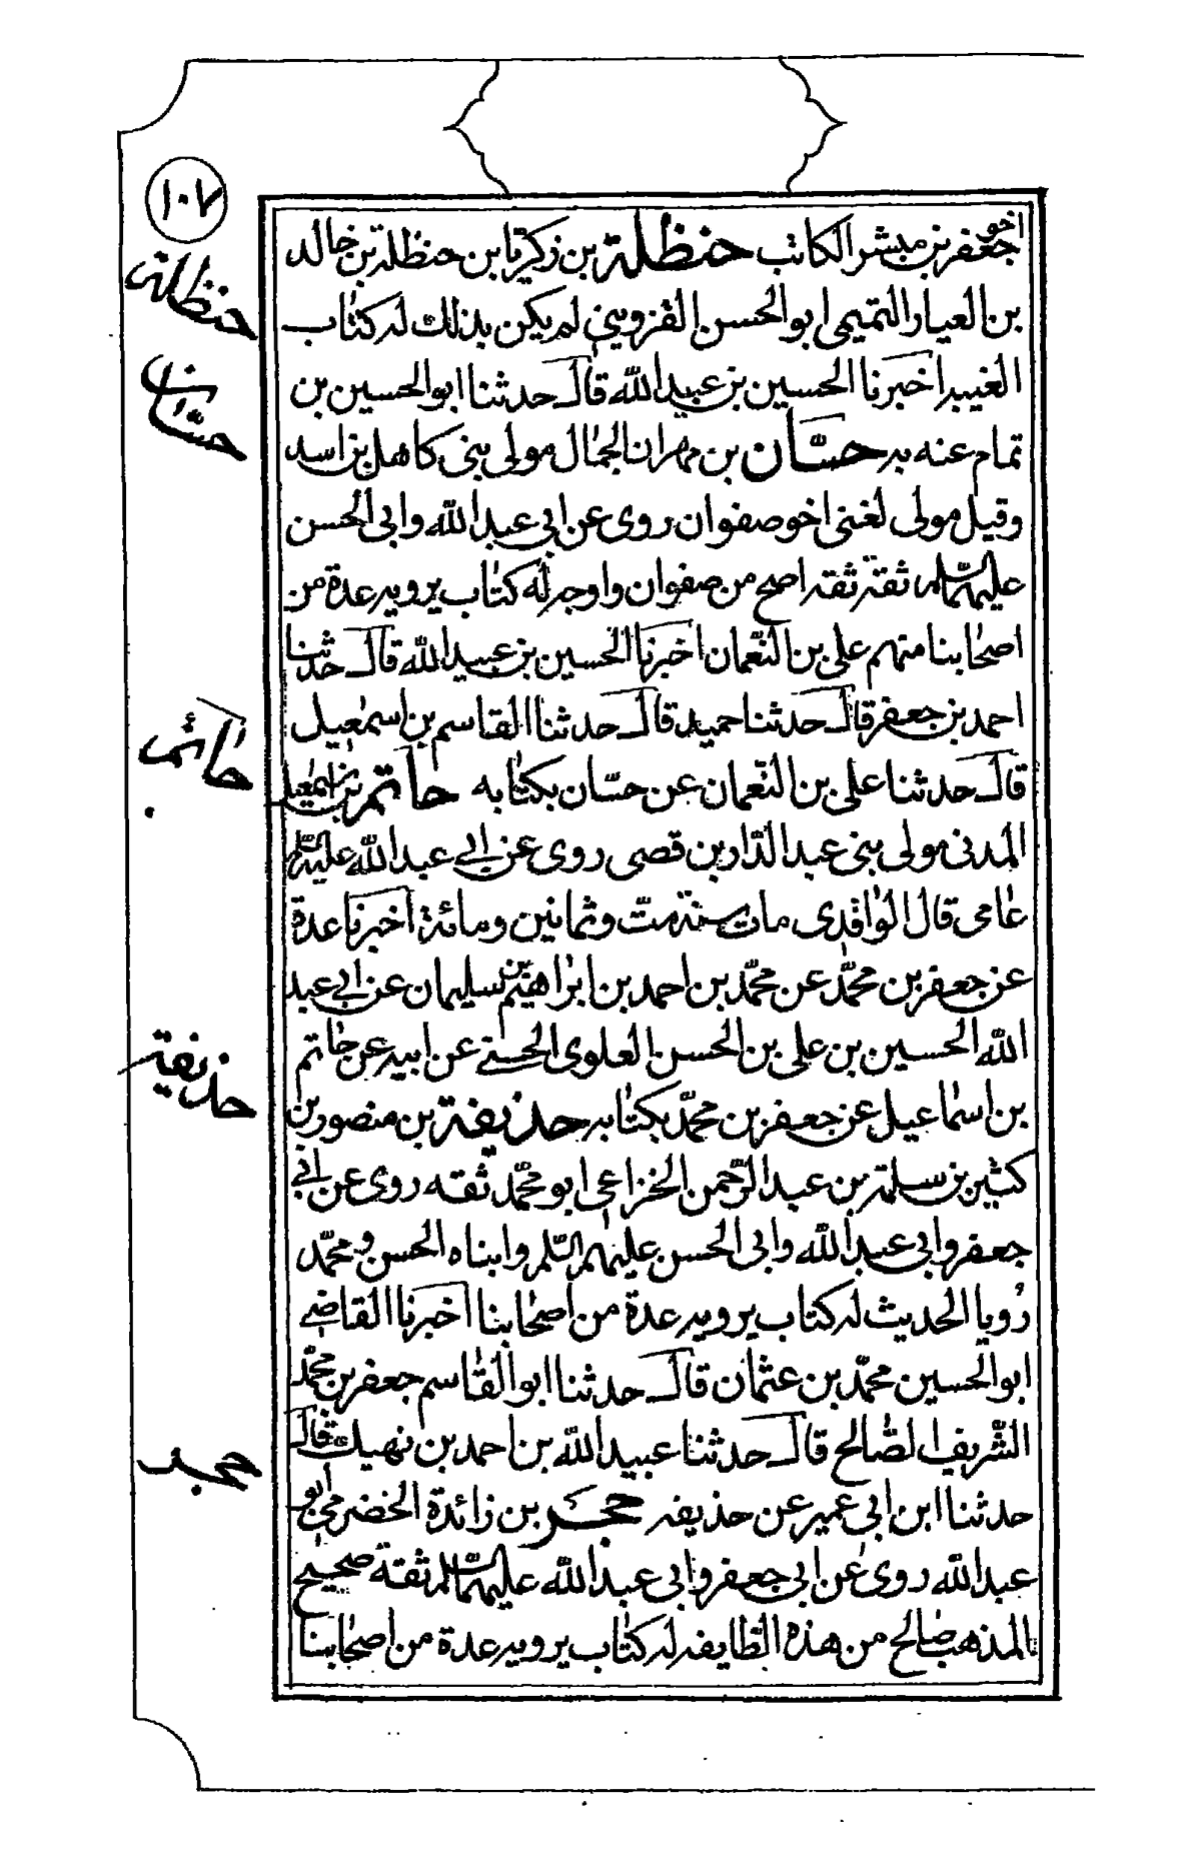 ١٠٧
اخو
جعفر بن مبشر الكاتب حنظلة بن زكريا بن حنظلة بن خالد
بن العيار التميمي ابو الحسن القزويني لم يكن بذلك له كتاب
الغيبه اخبرنا الحسين بن عبيد الله قال حدثنا ابو الحسين بن
تمام عنه به حسّان بن مهران الجمال مولى بنى كاهل بن اسد
وقيل مولى لغنى اخو صفوان روى عن ابي عبد الله وابي الحسن
عليهما السلم ثقة ثقه اصح من صفوان واوجه له كتاب يرويه عدة من
اصحابنا منهم على بن النعمان اخبرنا الحسين بن عبيد الله قال حدثنا
احمد بن جعفر قال حدثنا حميد قال حدثنا القاسم بن اسمعيل
قال حدثنا على بن النعمان عن حسّان بكتابه حاتم بن اسمعيل
المدنى مولى بنى عبد الدار بن قصى روى عن ابي عبد الله عليه السلم
عامى قال الواقدى مات سنة ست وثمانين ومائة اخبرنا عدة
عن جعفر بن محمّد عن محمّد بن احمد بن ابراهيم بن سليمان عن ابي عبد
الله الحسين بن على بن الحسن العلوى الحسنى عن ابيه عن حاتم
بن اسماعيل عن جعفر بن محمّد بكتابه حذيفة بن منصور بن
كثير بن سلمة بن عبد الرّحمن الخزاعي ابو محمّد ثقه روى عن ابي
جعفر وابي عبد الله وابي الحسن عليهم السّلم وابناه الحسن ومحمّد
رويا الحديث له كتاب يرويه عدة من اصحابنا اخبرنا القاضي
ابو الحسين محمّد بن عثمان قال حدثنا ابو القاسم جعفر بن محمّد
الشّريف الصّالح قال حدثنا عبيد الله بن احمد بن نهيك قال
حدثنا ابن ابي عمير عن حذيفه حجر بن زائدة الحضرمي ابو
عبد الله روى عن ابي جعفر وابي عبد الله عليهما السلم ثقة صحيح
المذهب صالح من هذه الطايفه له كتاب يرويه عدة من اصحابنا
حنظلة
حسّان
حاتم
حذيفة